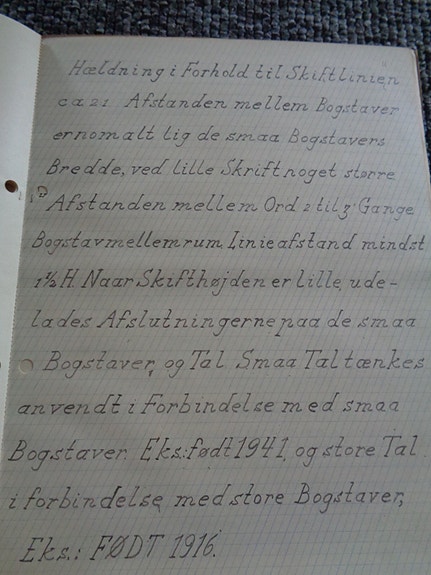 Hældning i Forhold til Skiftlinien
ca 2:1 Afstanden mellem Bogstaver
ernomalt lig de smaa Bogstavers
Bredde, ved lille Skrift noget større
Afstanden mellem Ord 2 til 3 Gange
Bogstavmellemrum. Linieafstand mindst
1½ H. Naar Skifthøjden er lille, ude-
lades Afslutningerne paa de smaa
Bogstaver, og Tal. Smaa Tal tænkes
anvendt i Forbindelse med smaa
Bogstaver. Eks.: født 1941, og store Tal
i forbindelse med store Bogstaver,
Eks.: FØDT 1916.